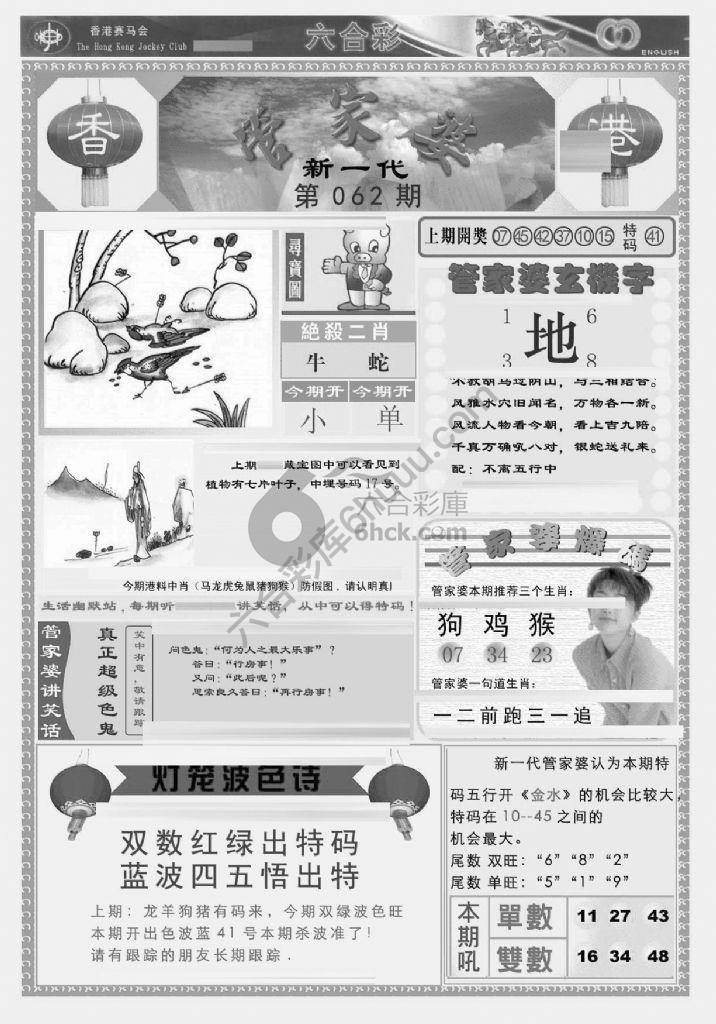 香港赛马会
The Hong Kong Jockey Club
六合彩
ENGLISH
香
港
管家婆
新一代
第 062 期
尋寶圖
絶殺二肖
牛 蛇
今期开 今期开
小 单
上期開奬 07 45 42 37 10 15 特码 41
管家婆玄機字
1 6
地
3 8
风雅水穴旧闻名，万物各一新。
风流人物看今朝，看上吉九陪。
千真万确吼八对，银蛇送礼来。
配：不离五行中
上期 藏宝图中可以看见到
植物有七片叶子，中埋号码 17 号。
六合彩库6huuu.com
六合彩庫
6hck.com
今期港料中肖（马龙虎兔鼠猪狗猴）防假图．请认明真
生活幽默站，每期听 讲笑话，从中可以得特码！
管家婆讲笑话
真正超级色鬼
笑中有意，敬请跟踪
问色鬼：“何为人之最大乐事”？
答曰：“行房事！”
又问：“此后呢？”
思索良久答曰：“再行房事！”
管家婆本期推荐三个生肖：
狗 鸡 猴
07 34 23
管家婆一句道生肖：
一二前跑三一追
灯笼波色诗
双数红绿出特码
蓝波四五悟出特
上期：龙羊狗猪有码来，今期双绿波色旺
本期开出色波蓝 41 号本期杀波准了！
请有跟踪的朋友长期跟踪．
新一代管家婆认为本期特
码五行开《金水》的机会比较大，
特码在 10--45 之间的
机会最大。
尾数 双旺：“6” “8” “2”
尾数 单旺：“5” “1” “9”
本期吼
單數 11 27 43
雙數 16 34 48